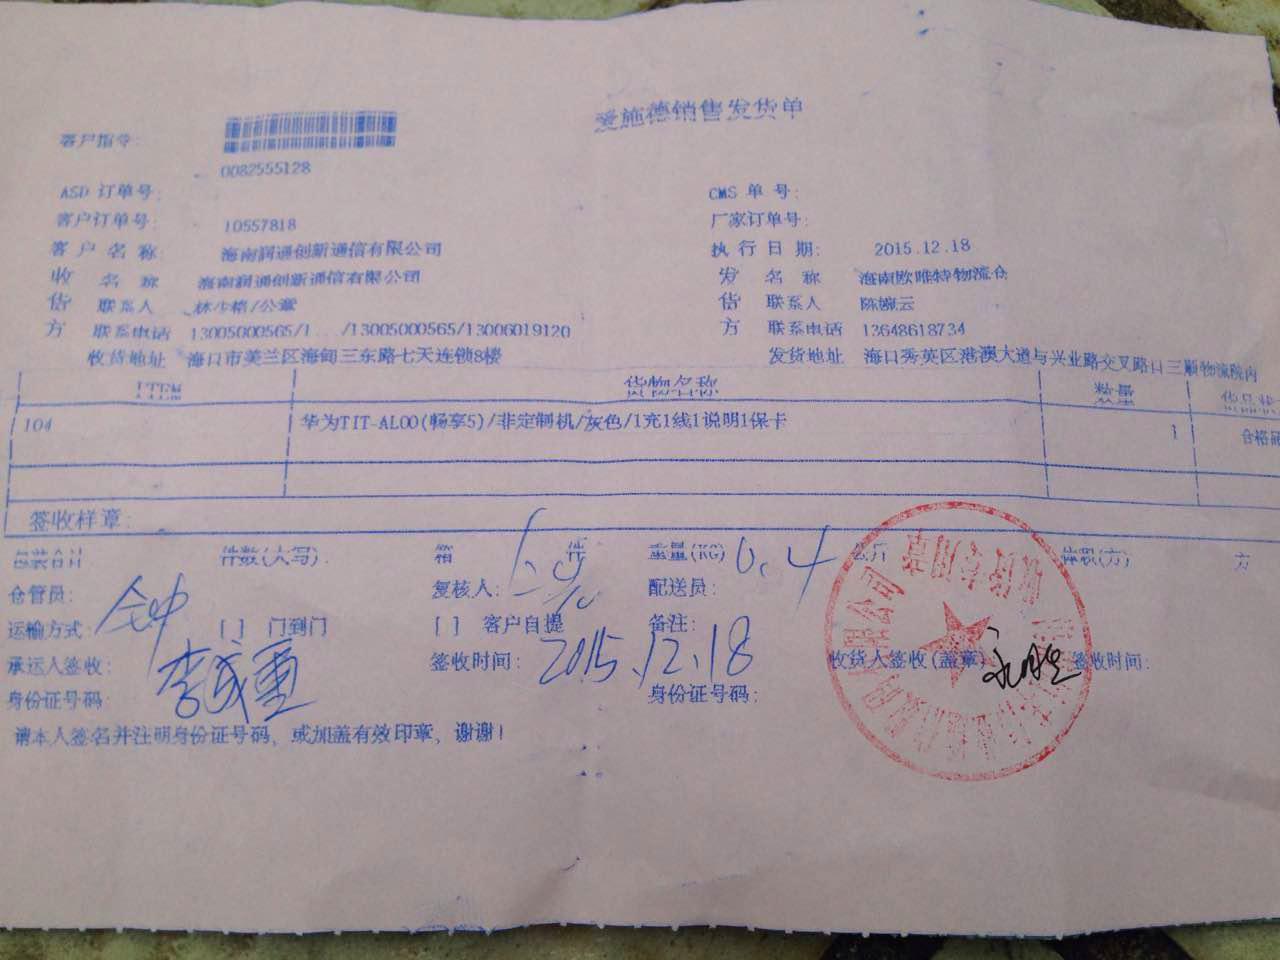 爱施德销售发货单
客户指令:
0082555128
ASD 订单号: CMS 单 号:
客户订单号: 10557818 厂家订单号:
客 户 名 称: 海南润通创新通信有限公司 执 行 日 期: 2015.12.18
收 名 称 海南润通创新通信有限公司 发 名 称 海南欧唯特物流仓
货 联系人 林少格/公章 货 联系人 陈婉云
方 联系电话 13005000565/1 /13005000565/13006019120 方 联系电话 13648618734
收货地址 海口市美兰区海甸三东路七天连锁8楼 发货地址 海口秀英区港澳大道与兴业路交叉路口三顺物流院内
ITEM 货物名称 数量 货品状
104 华为TIT-AL00(畅享5)/非定制机/灰色/1充1线1说明1保卡 1 合格
签收样章:
包装合计 件数(大写): 箱 件 重量(KG) 0.4 公斤 体积(方) 方
仓管员: 复核人: 配送员:
运输方式: [ ] 门到门 [ ] 客户自提 备注:
承运人签收: 签收时间: 2015.12.18 收货人签收(盖章) 签收时间:
身份证号码: 身份证号码:
请本人签名并注明身份证号码，或加盖有效印章，谢谢!